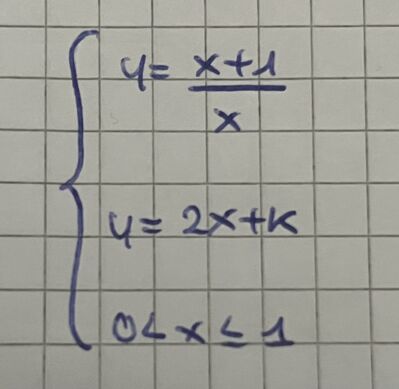 y = x+1
x
y = 2x+k
0 < x ≤ 1